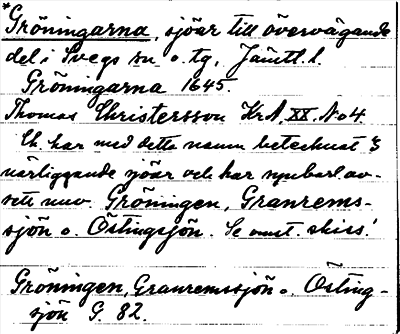 *Gröningarna, sjöar till övervägande
del i Svegs sn o. tg, Jämtl. l.
Gröningarna 1645.
Thomas Christersson Kr A. XX. No 4.
Ch. har med detta namn betecknat 3
närliggande sjöar och har uppenbarl. av-
sett nuv. Gröningen, Granrems-
sjön o. Östingsjön. Se omst. skiss!
Gröningen, Granremssjön o. Östing-
sjön G. 82.